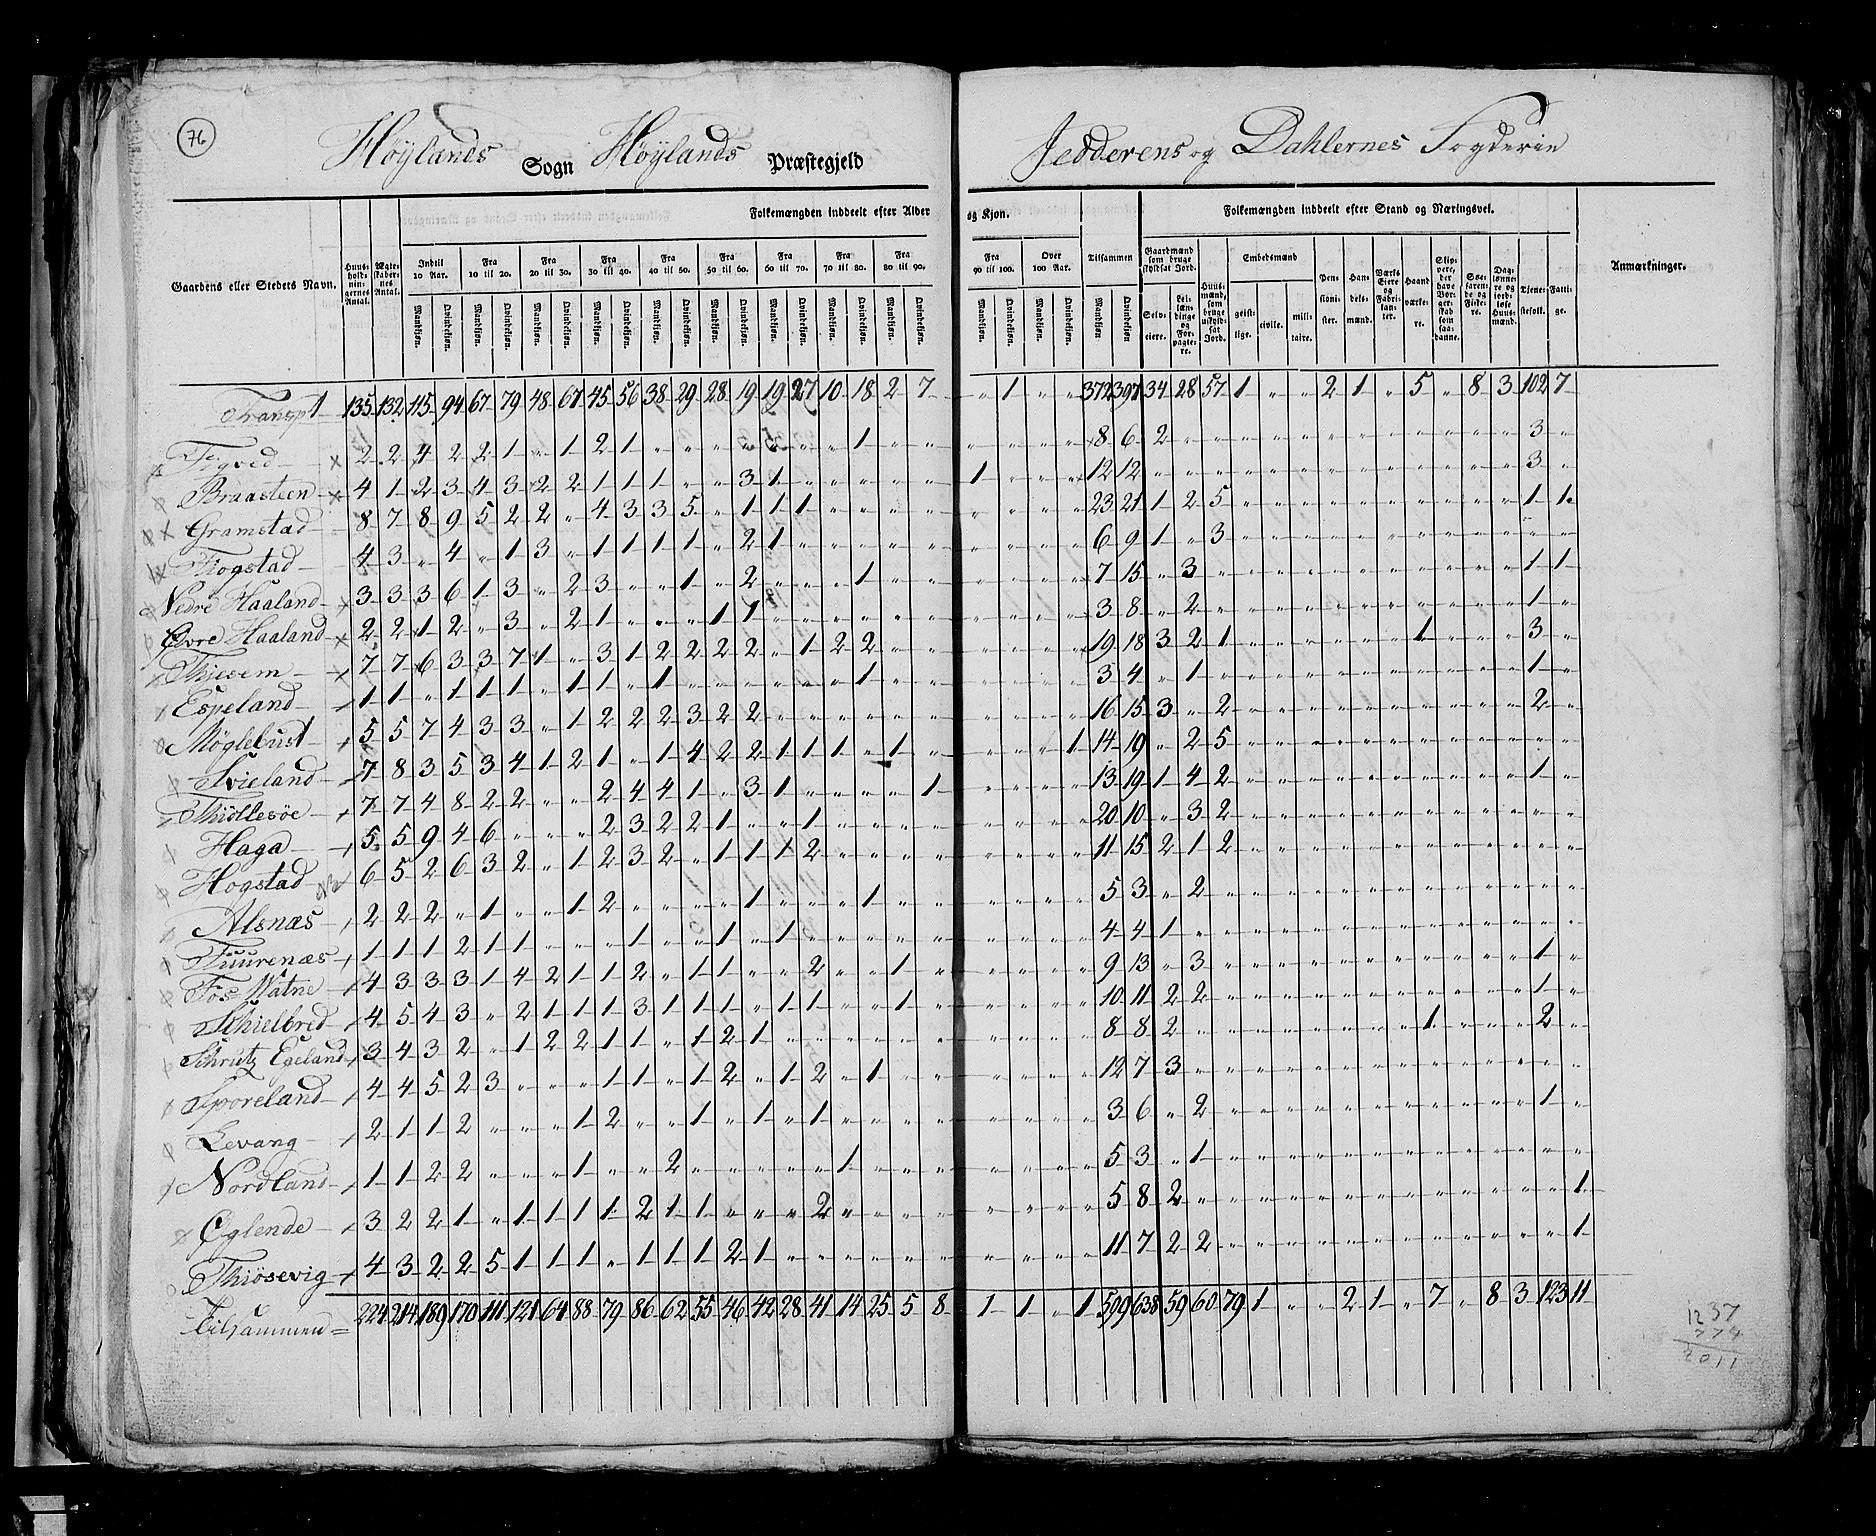 76
Höylands Sogn Höylands Præstegjeld
Jedderens og Dahlernes Fogderie
Folkemængden inddeelt efter Alder og Kjøn.
Folkemængden inddeelt efter Stand og Næringsvei.
Gaardens eller Stedets Navn.
Huusholdningernes Antal.
Ægteskabernes Antal.
Indtil 10 Aar.
Fra 10 til 20.
Fra 20 til 30.
Fra 30 til 40.
Fra 40 til 50.
Fra 50 til 60.
Fra 60 til 70.
Fra 70 til 80.
Fra 80 til 90.
Fra 90 til 100.
Over 100 Aar.
Tilsammen
Mandkjøn. Qvindekjøn.
Gaardmænd som bruge skyldsat Jord.
Selveiere.
Leilændinge og Forpagtere.
Huusmænd, som bruge uskyldsat Jord.
Embedsmænd
geistlige. civile. militaire.
Pensionister.
Handelsmænd.
Værks Eiere og Fabrikanter.
Haandværkere.
Søefarende og Fiskere.
Daglønnere og jordløse Huusmænd.
Tjenestefolk.
Fattige.
Anmærkninger.
Transpt 135 132 115 94 67 79 48 67 45 56 38 29 28 19 19 27 10 18 2 7 " 1 " " 372 397 34 28 57 1 " " 2 1 " 5 " 8 3 102 7
Braasteen 4 1 2 3 4 3 2 2 1 1 1 " " 3 1 1 12 12 3
Gramstad 8 7 8 9 5 2 2 " 4 3 3 5 " 1 1 1 23 21 1 2 5 1 1
Fiogstad 4 3 " 4 " 1 3 " 1 1 1 1 " 2 1 6 9 1 " 3
Nedre Haaland 3 3 3 6 1 3 " 2 3 " " 1 " 2 " " " 1 7 15 " 3 1 1
Övre Haaland 2 2 1 2 " 3 " 2 1 " " " 1 1 3 8 " 2 1
Thjesem 7 7 6 3 3 7 1 " 3 1 2 2 2 2 " 1 2 2 19 18 3 2 1 1 3
Espeland 1 1 " 1 1 1 " 1 1 " 1 1 3 4 " 1 1
Möglebust 5 5 7 4 3 3 " 1 2 2 2 3 2 2 16 15 3 " 2 2
Svieland 7 8 3 5 3 4 1 2 1 " 1 4 2 2 1 1 1 " 1 1 14 19 " 2 5
Thiöllesöe 7 7 4 8 2 2 " " 2 4 4 1 " 3 1 1 13 19 1 4 2 1
Haga 5 5 9 4 6 " " " 2 3 2 2 1 " " 1 20 10 " 3 2
Hogstad 6 5 2 6 3 2 " 1 2 3 2 " 1 1 1 2 11 15 2 1 2
Alsnæs 2 2 2 " 1 " " 1 2 1 1 5 3 " 2
Tuurenæs 1 1 1 2 1 1 " " " 1 " " 1 " 1 4 4 1
Fos Watne 4 3 3 3 1 4 2 1 1 2 " 1 1 " " 2 " " 1 9 13 " 3 1
Schielbred 4 5 4 3 " 2 1 1 1 3 1 1 1 " 1 1 " " 1 10 11 2 2 1
Schrutz Egeland 3 4 3 2 " 1 2 2 1 1 " 1 2 1 8 8 2 1 2
Sporeland 4 4 5 2 3 " " " 1 1 " 1 2 " 1 2 " 1 12 7 3
Levang 2 1 1 2 " " " 1 2 " " 1 " 1 " 1 3 6 " 2 1
Nordland 1 1 2 2 " " " 1 " " 2 1 5 3 " 1
Öglende 3 2 2 1 " 1 1 1 1 2 1 1 " " " 2 5 8 2 1
Thiösevig 4 3 2 2 5 1 1 1 " 1 1 1 2 1 11 7 2 2 1
Tilsammen 224 214 189 170 111 121 64 88 79 86 62 55 46 42 28 41 14 25 5 8 1 1 " 1 599 638 59 60 79 1 " " 2 1 " 7 " 8 3 123 11
1237
774
2011